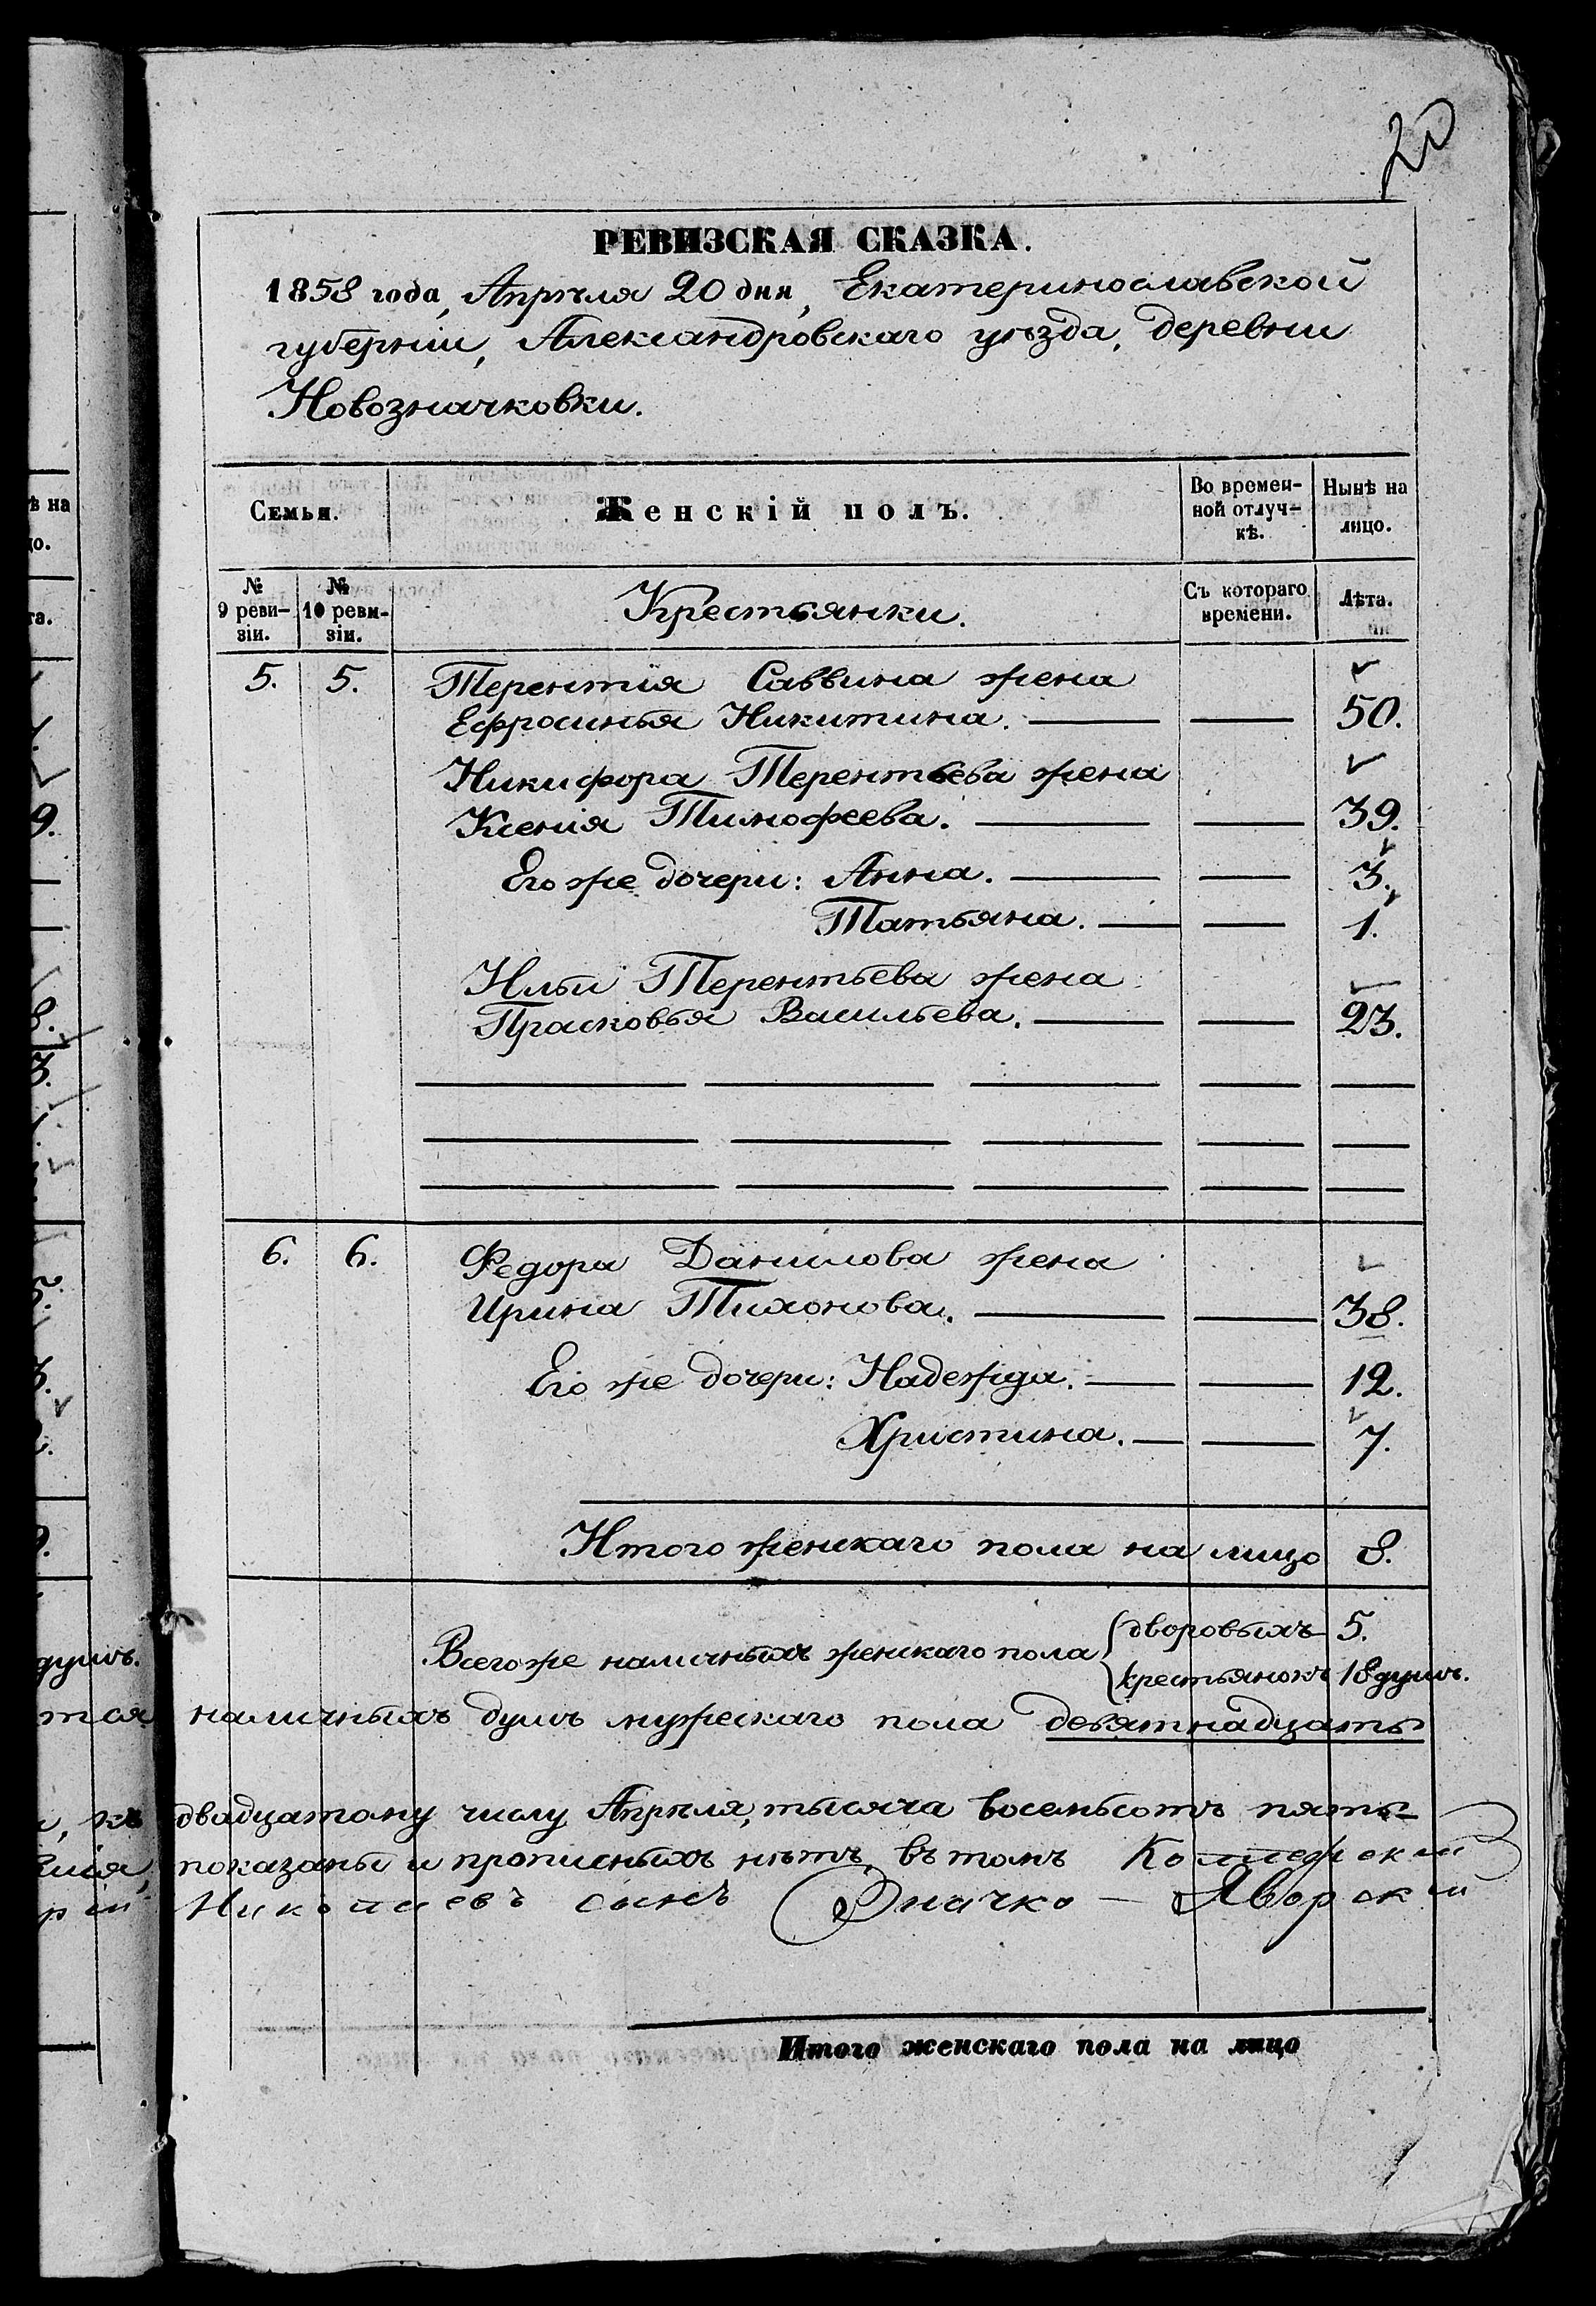 20
РЕВИЗСКАЯ СКАЗКА.
1858 года, Апрѣля 20 дня, Екатеринославской
губерніи, Александровскаго уѣзда, деревни
Новозначковки.
Семьи.
Женскій полъ.
Во времен-
ной отлуч-
кѣ.
Нынѣ на
лицо.
№
9 реви-
зіи.
№
10 реви-
зіи.
Крестьянки.
Съ котораго
времени.
Лѣта.
5. 5. Терентія Саввина жена
Ефросинья Никитина. 50.
Никифора Терентьева жена
Ксенія Тимофеева. 39.
Его же дочери: Анна. 3.
Татьяна. 1.
Ильи Терентьева жена
Прасковья Васильева. 23.
6. 6. Федора Данилова жена
Ирина Тихонова. 38.
Его же дочери: Надежда. 12.
Христина. 7.
Итого женскаго пола на лицо 8.
Всего же наличныхъ женскаго пола
дворовыхъ 5.
крестьянокъ 18 душъ.
наличныхъ душъ мужескаго пола девятнадцать
двадцатому числу Апрѣля, тысяча восемьсотъ пять-
показаны и прописныхъ нѣтъ, въ томъ Коллежскій
Николаевъ сынъ Значко-Яворскій
Итого женскаго пола на лицо